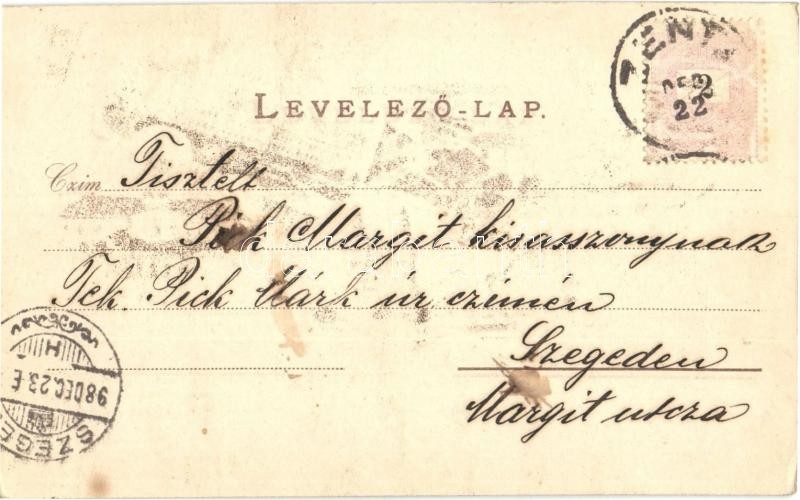 ZENT
DEC
22
LEVELEZŐ-LAP.
Czim Tisztelt
Pick Margit kisasszonynak
Tek. Pick Márk úr czímén
Szegeden
Margit utcza
SZEGE
98 DEC. 23. E
H